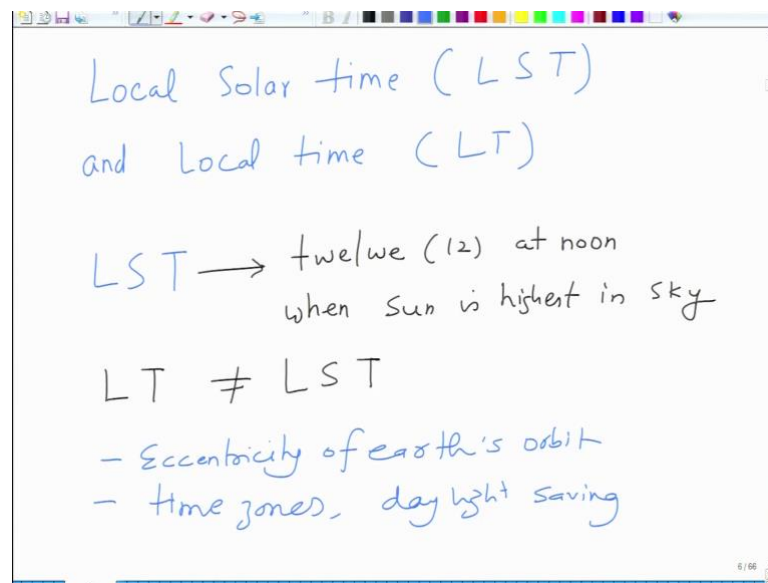 Local Solar time (LST)
and Local time (LT)
LST → twelwe (12) at noon
when sun is highest in sky
LT ≠ LST
- Eccentricity of earth's orbit
- time zones, daylight saving
6/66